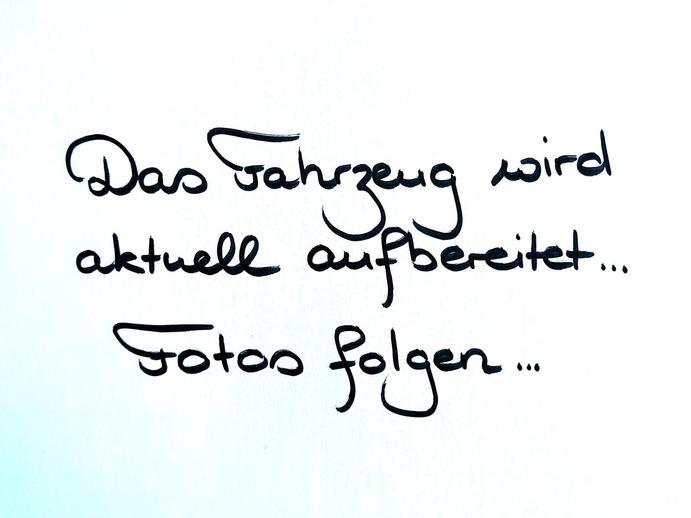 Das Fahrzeug wird
aktuell aufbereitet...
Fotos folgen...